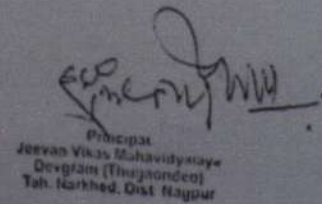 Principal
Jeevan Vikas Mahavidyalaya
Devgram (Thugaondeo)
Tah. Narkhed, Dist Nagpur